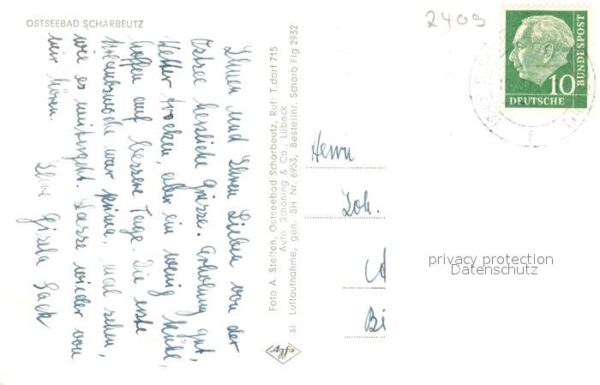 OSTSEEBAD SCHARBEUTZ
Ihnen und Ihren Lieben von der
Ostsee herzliche Grüsse. Erholung gut,
Wetter trocken, aber ein wenig kühl,
hoffen auf bessere Tage. Die erste
Urlaubswoche war prima, mal sehen,
wie es weitergeht. Lasse wieder von
mir hören. Ihre Gisela
Foto A. Steffen, Ostseebad Scharbeutz, Ruf: T.dorf 715
Aufn. Schöning & Co., Lübeck
si Luftaufnahme, gen. SH Nr. 6953, Bestellnr. Scharb Flg 2932
Agfa
2409
10
DEUTSCHE
BUNDESPOST
Herrn
Joh.
Bi
privacy protection
Datenschutz